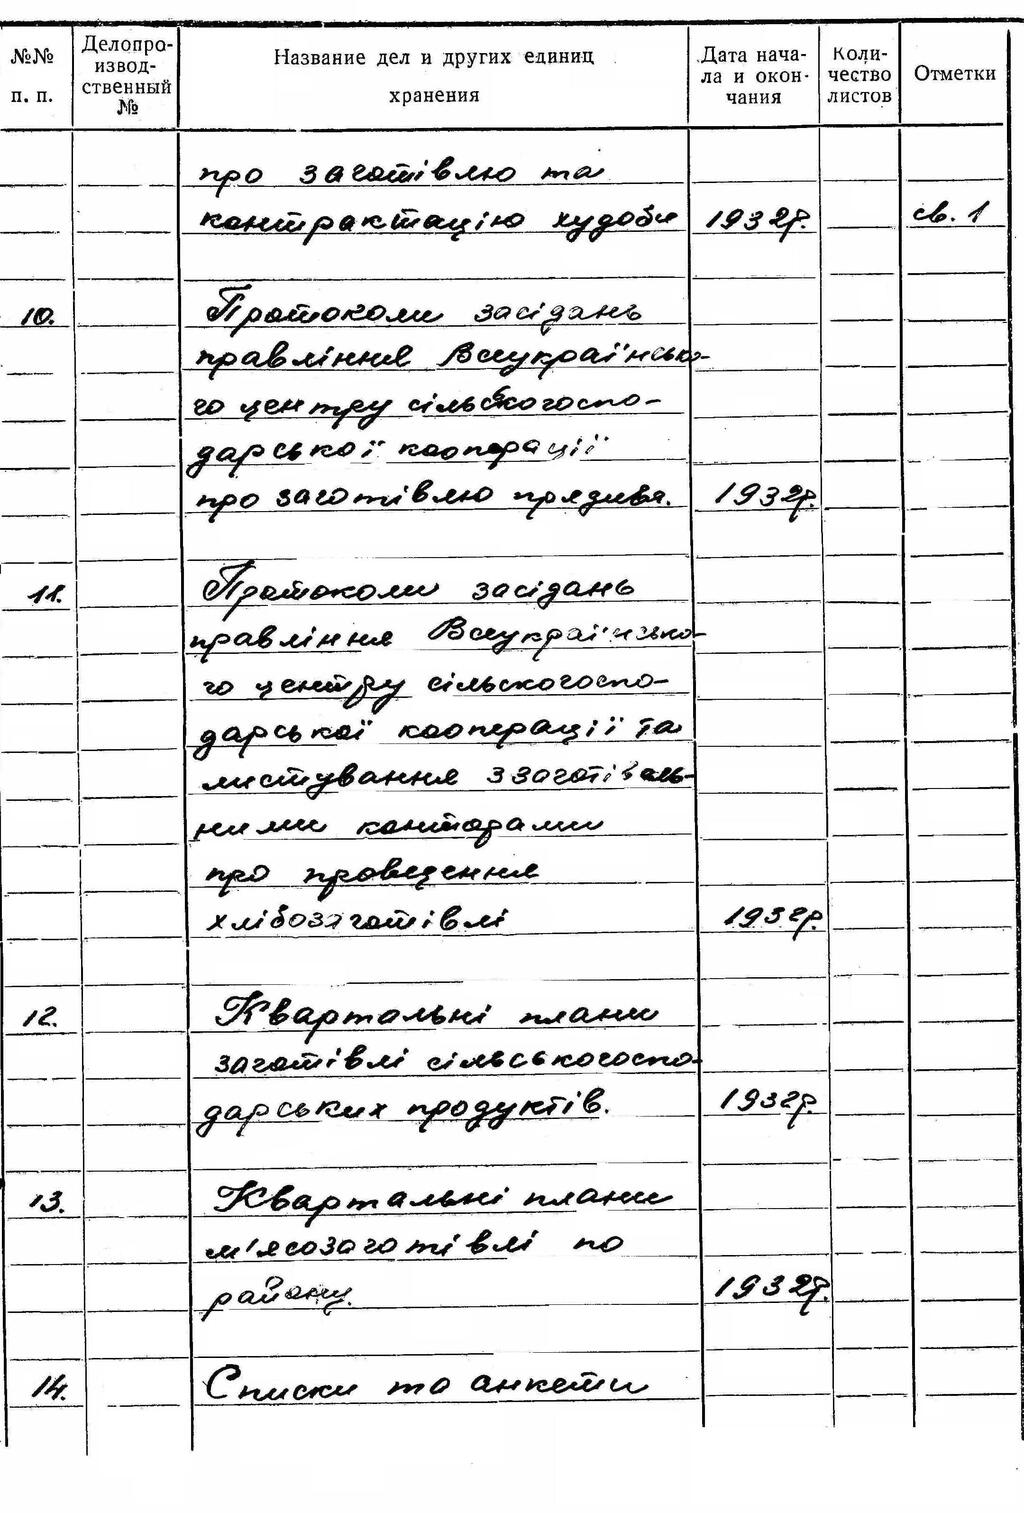 №№ п. п. Делопроизводственный № Название дел и других единиц хранения Дата начала и окончания Количество листов Отметки
про заготівлю та
контрактацію худоби 1932р. св. 1
10. Протоколи засідань
правління Всеукраїнсько-
го центру сільськогоспо-
дарської кооперації
про заготівлю прядива. 1932р.
11. Протоколи засідань
правління Всеукраїнсько-
го центру сільскогоспо-
дарської кооперації та
листування з заготіваль-
ними конторами
про проведення
хлібозаготівлі 1932р.
12. Квартальні плани
заготівлі сільськогоспо-
дарських продуктів. 1932р.
13. Квартальні плани
м'ясозаготівлі по
району. 1932р.
14. Списки та анкети